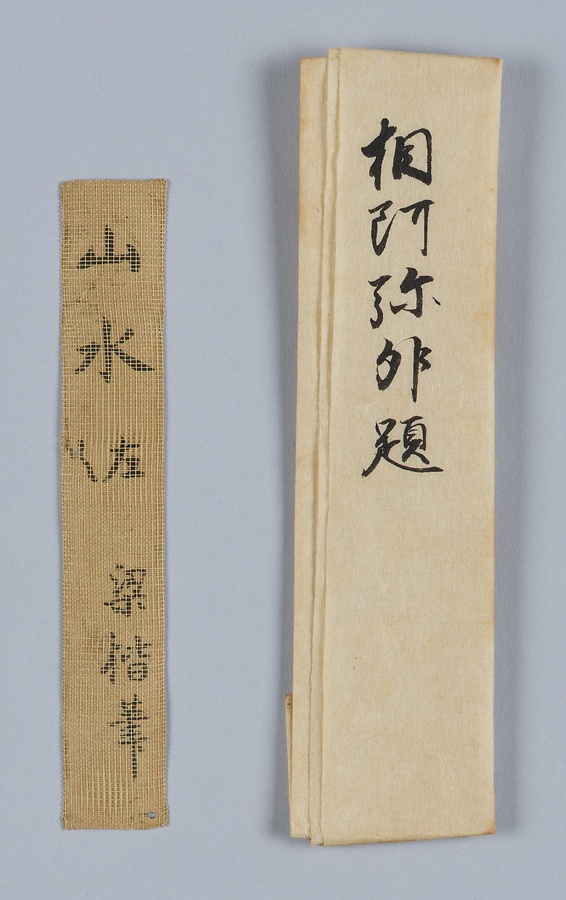 相阿弥外題
山水 左
梁楷筆